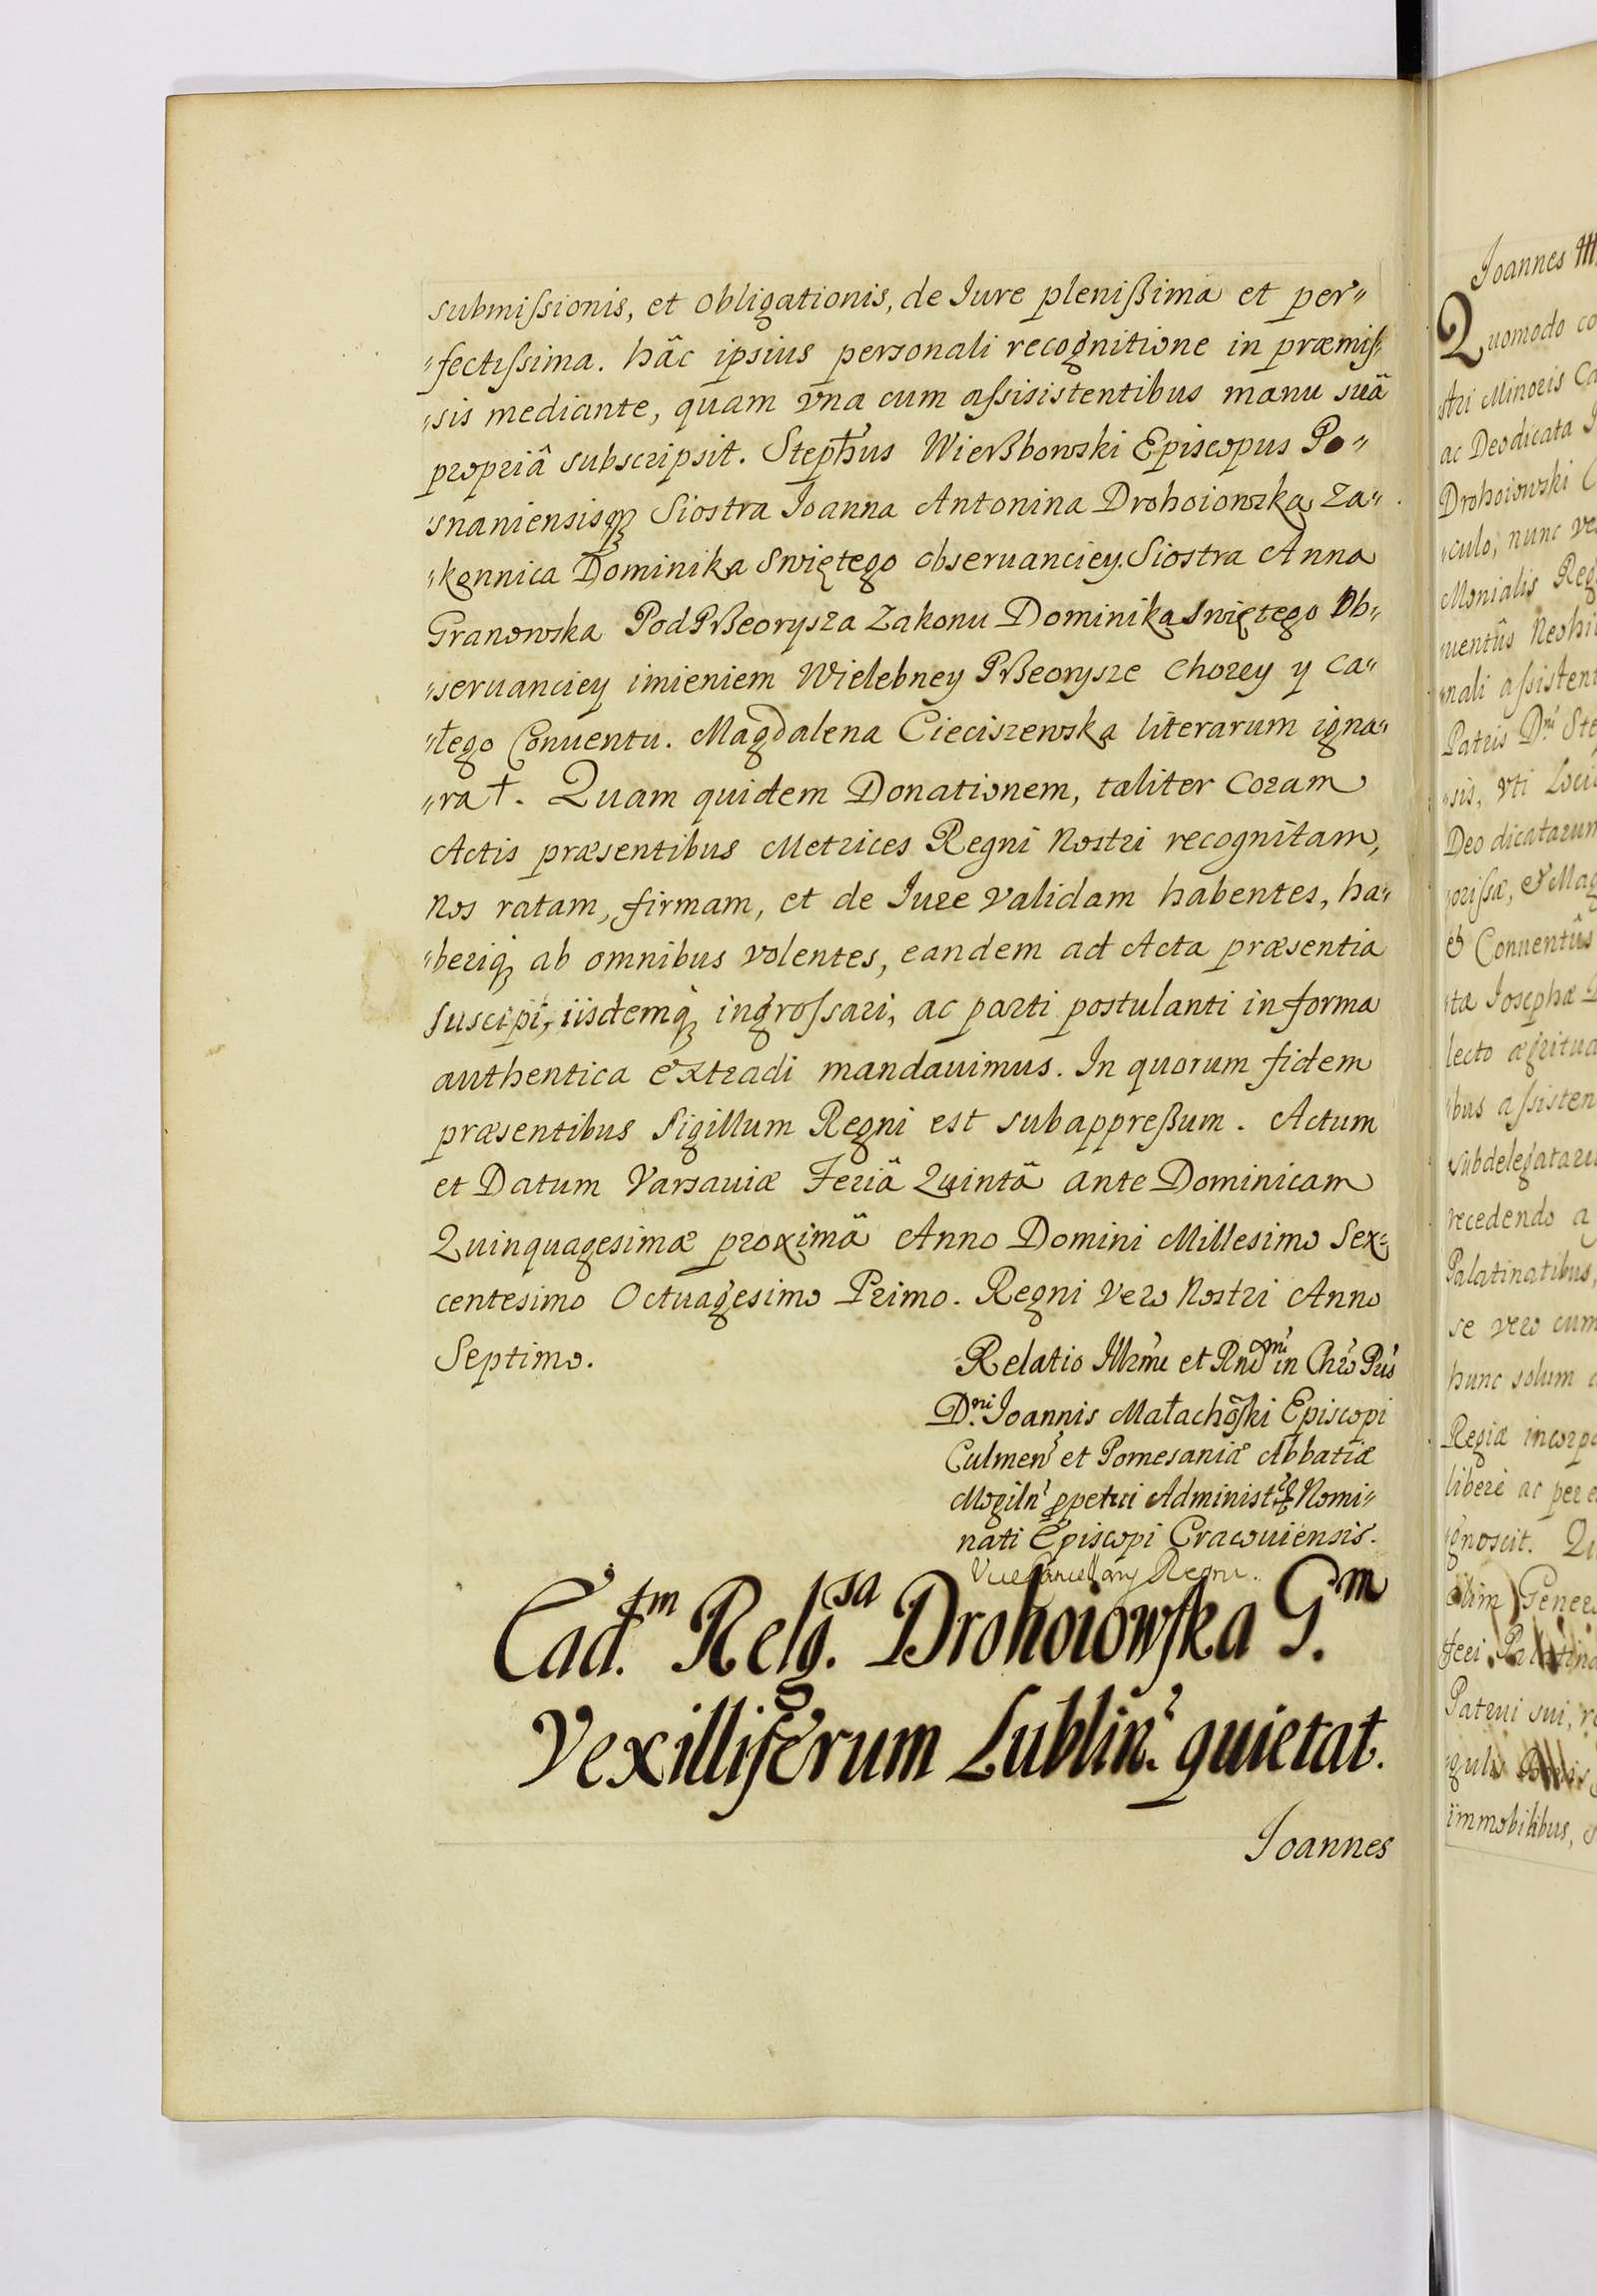 submiſsionis, et obligationis, de Iure plenißima et per„
„fectiſsima. hâc ipsius personali recognitione in præmiſ„
„sis mediante, quam vna cum aſsisistentibus manu suâ
propriâ subscripsit. Stephus Wierßbowski Episcopus Po„
„snaniensisq Siostra Joanna Antonina Drohoiowska Za„
„konnica Dominika Swiętego obseruanciey. Siostra Anna
Granowska PodPßeorysza Zakonu Dominika Swiętego Ob„
„seruanciey imieniem Wielebney Pßeorysze Chorey y Ca„
„łego Conuentu. Magdalena Cieciszewska literarum igna„
„ra †. Quam quidem Donationem, taliter Coram
Actis præsentibus Metrices Regni Nostri recognitam,
Nos ratam, firmam, et de Iure validam habentes, ha„
„beriq ab omnibus volentes, eandem ad Acta præsentia
suscipi, iisdemq ingroſsari, ac parti postulanti in forma
authentica extradi mandauimus. In quorum fidem
præsentibus Sigillum Regni est subappreßum. Actum
et Datum Varsauiæ Feriâ Quintâ ante Dominicam
Quinquagesimæ proximâ Anno Domini Millesimo Sex„
centesimo Octuagesimo Primo. Regni Vero Nostri Anno
Septimo.
Relatio Illrmi et Rndmi in Chro Pris
D.ni Joannis Małachoſki Episcopi
Culmen et Pomesaniæ Abbatiæ
Mogiln ppetui Administ Nomi„
nati Episcopi Cracouiensis.
ViceCancellarij Regni.
Ead.tm Relg.sa Drohoiowſka G.m
Vexilliferum Lublin. quietat.
Joannes
Joannes III
Quomodo co
stri Minoris Ca
ac Deodicata J
Drohoiowski C
„culo, nunc ve
Monialis Reg
„uentûs Neohi
„nali aſsistent
Patris D.ni Ste
„sis, vti Loci
Deo dicatarum
„oriſsæ, et Mag
et Conuentûs
„ta Josephæ D
lecto ægritud
„bus aſsisten
Subdelegataru
recedendo a
Palatinatibus,
se vero cum
hunc solum a
Regiæ incorpo
liberè ac per e
„gnoscit. Qu
olim Genero
feri Palatina
Patrui sui, r
„gulis
immobilibus, s